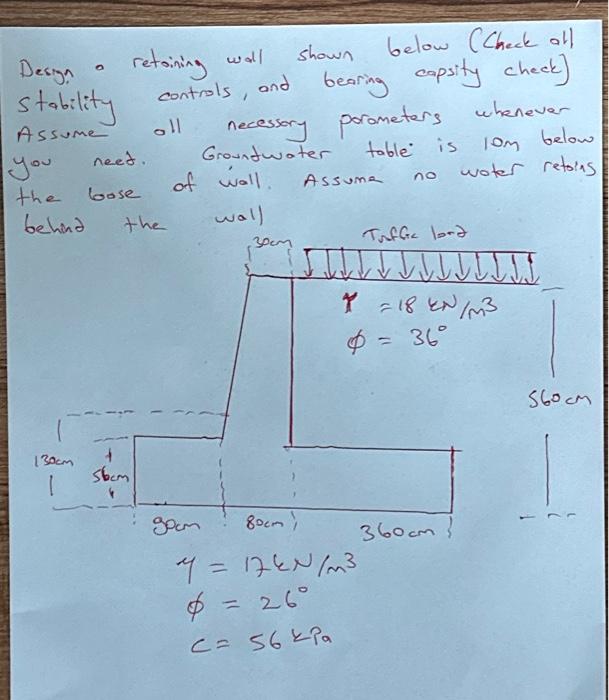 Design a retaining wall shown below (Check all
stability controls, and bearing capsity check)
Assume all necessary parameters whenever
you need. Groundwater table is 10m below
the base of wall. Assume no water retains
behind the wall
30cm Traffic load
γ = 18 kN/m3
ϕ = 36°
560cm
130cm 56cm
90cm 80cm 360cm
γ = 17kN/m3
ϕ = 26°
c = 56 kPa